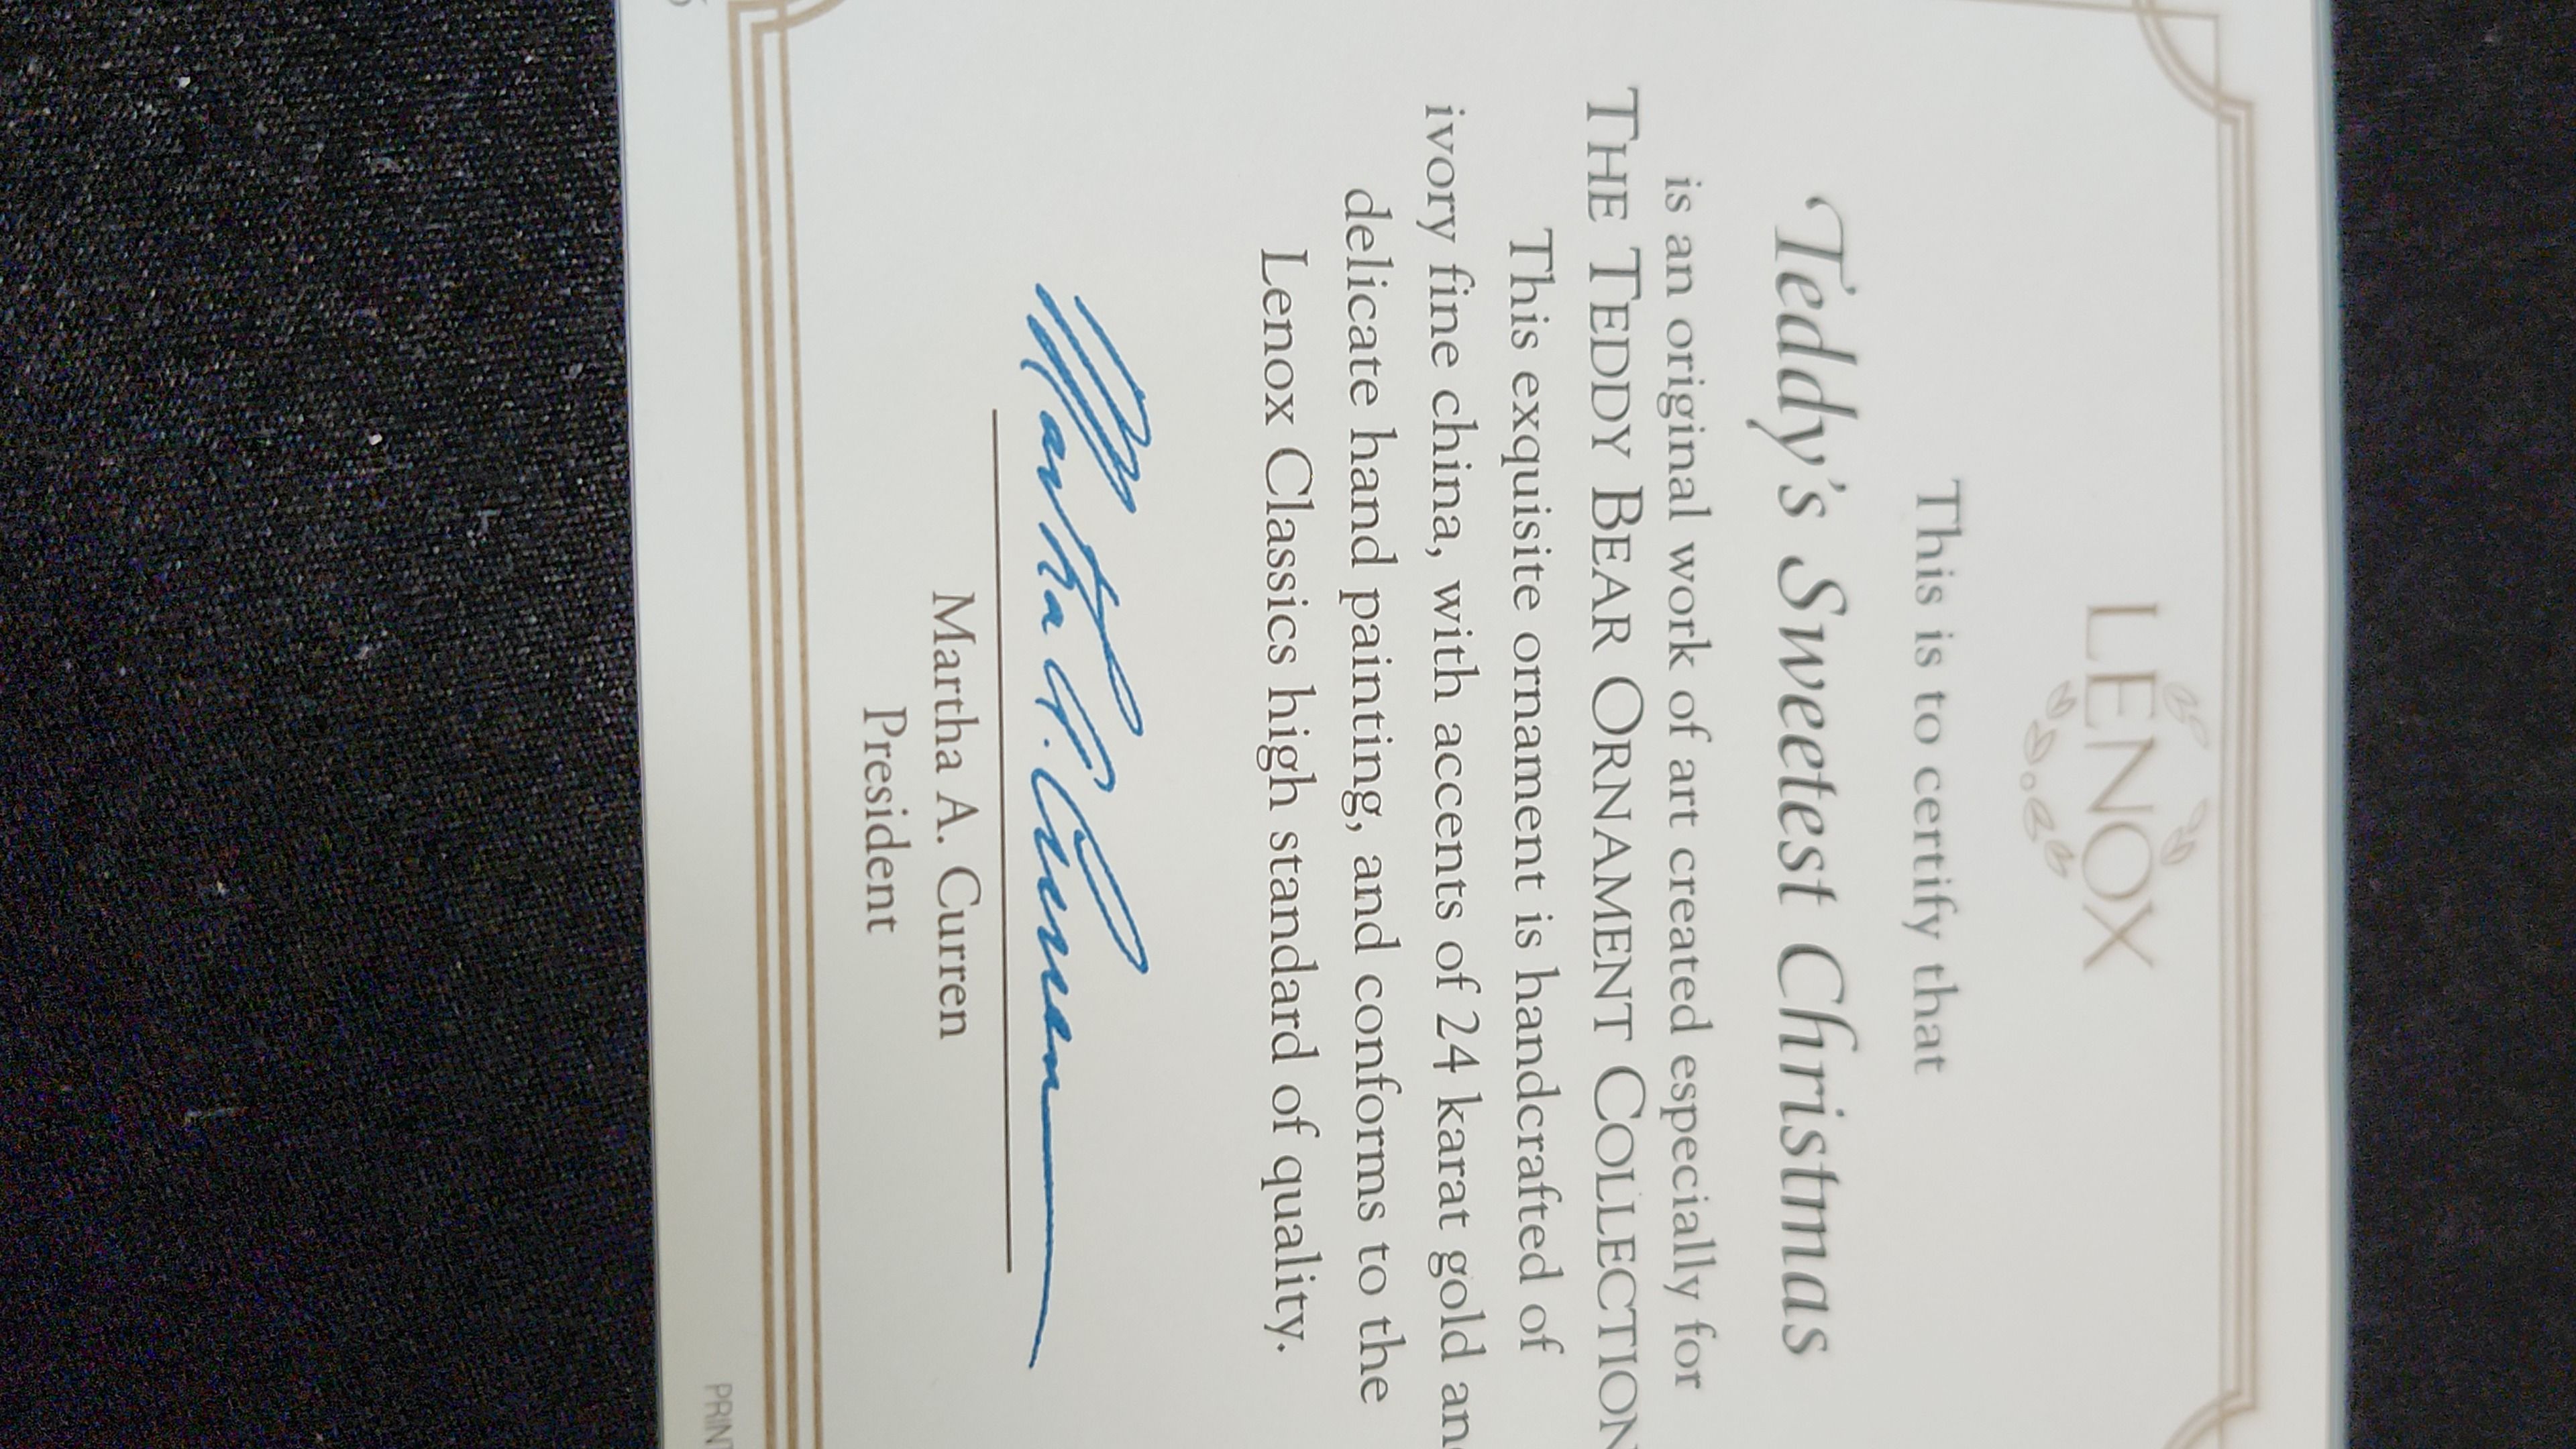 LENOX
This is to certify that
Teddy's Sweetest Christmas
is an original work of art created especially for
THE TEDDY BEAR ORNAMENT COLLECTION
This exquisite ornament is handcrafted of
ivory fine china, with accents of 24 karat gold and
delicate hand painting, and conforms to the
Lenox Classics high standard of quality.
Martha A. Curren
Martha A. Curren
President
PRINT